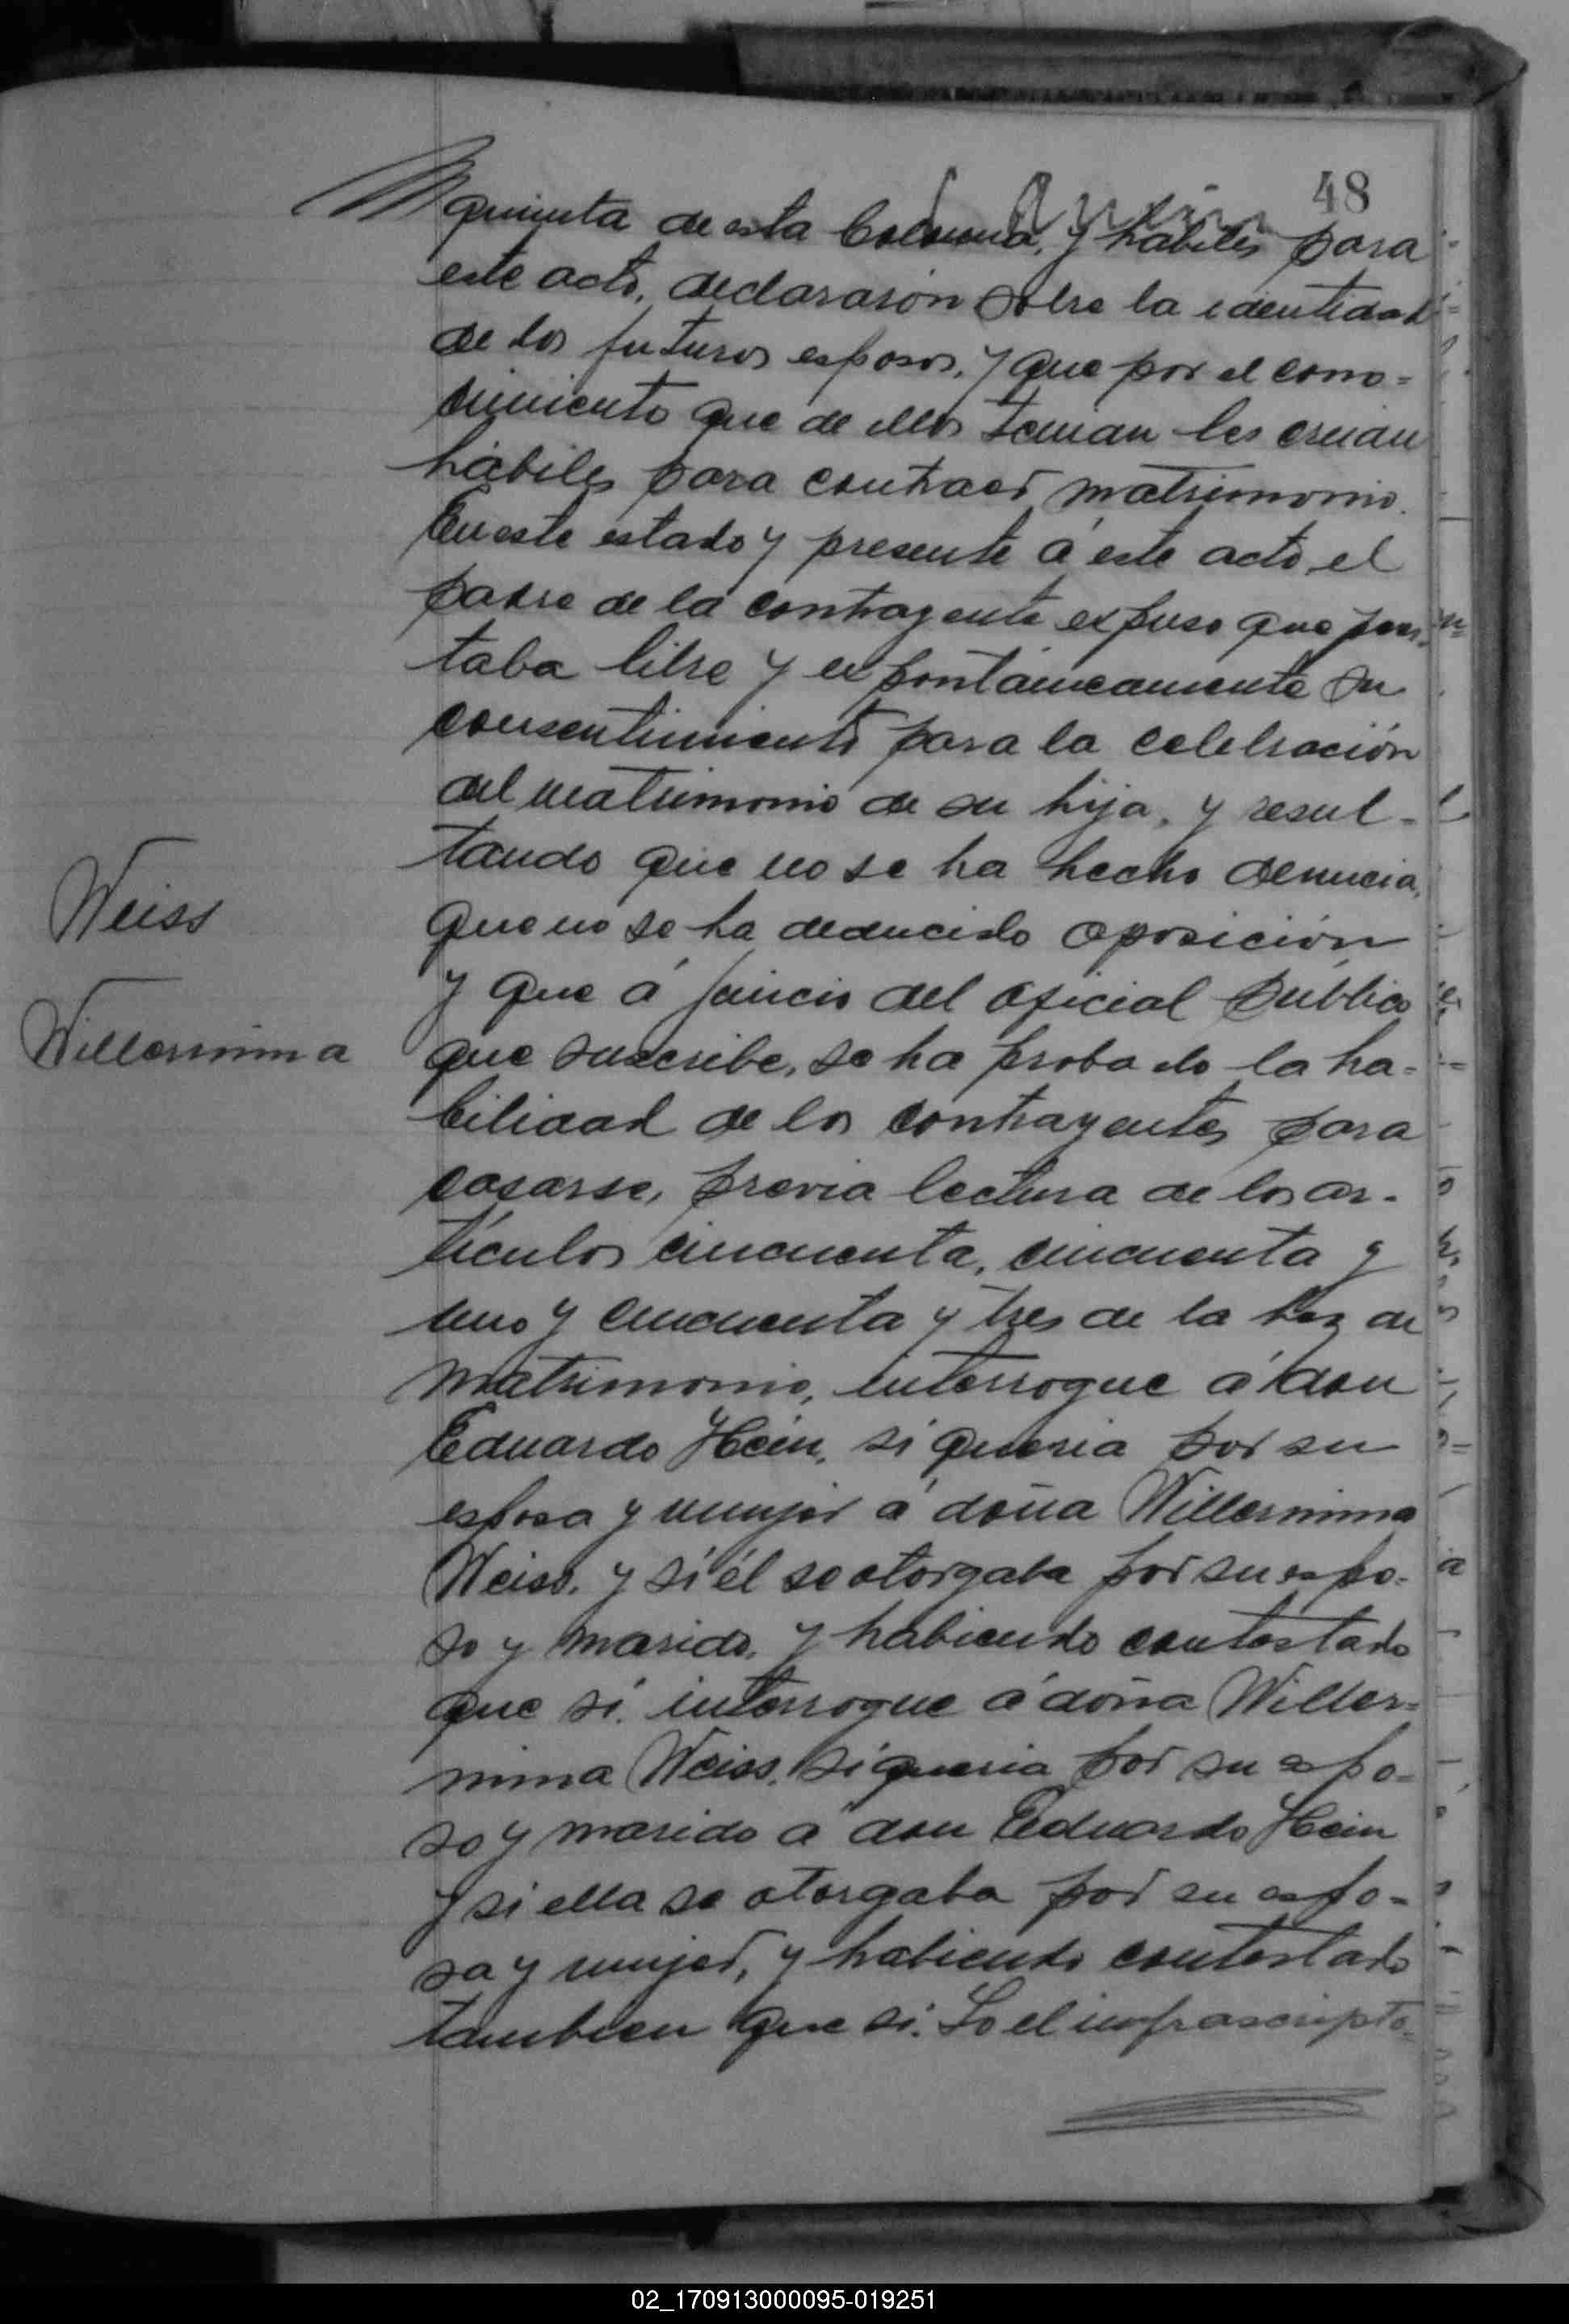 48
quinta de esta Colonia, y habiles para
este acto, declararon sobre la identidad
de los futuros esposos, y que por el cono=
cimiento que de ellos tenian les creian
hábiles para contraer matrimonio.
En este estado y presente á este acto, el
padre de la contrayente expuso que pres-
taba libre y expontáneamente su
consentimiento para la celebración
del matrimonio de su hija, y resul-
tando que no se ha hecho denuncia,
Weiss
que no se ha deducido oposición
y que á juicio del oficial público
Willermima
que suscribe, se ha probado la ha-
bilidad de los contrayentes para
casarse, previa lectura de los ar-
tículos cincuenta, cincuenta y
uno y cincuenta y tres de la ley de
matrimonio, interrogue á don
Eduardo Hein, si queria por su
esposa y mujer á doña Willermima
Weiss, y si él se otorgaba por su espo-
so y marido, y habiendo contestado
que sí, interrogue á doña Willer=
mima Weiss, si queria por su espo=
so y marido á don Eduardo Hein
y si ella se otorgaba por su espo-
sa y mujer, y habiendo contestado
tambien que sí. Yo el infrascripto
02_170913000095-019251